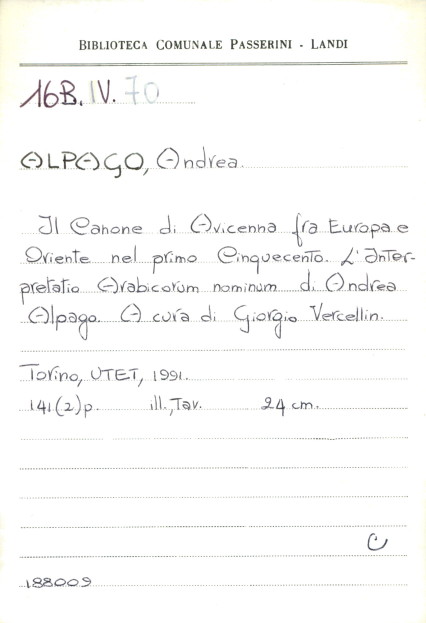 BIBLIOTECA COMUNALE PASSERINI - LANDI
16B.IV.70
ALPAGO, Andrea.
Il Canone di Avicenna fra Europa e
Oriente nel primo Cinquecento. L'Inter-
pretatio Arabicorum nominum di Andrea
Alpago. A cura di Giorgio Vercellin.
Torino, UTET, 1991.
141(2)p. ill., Tav. 24 cm.
C
188009